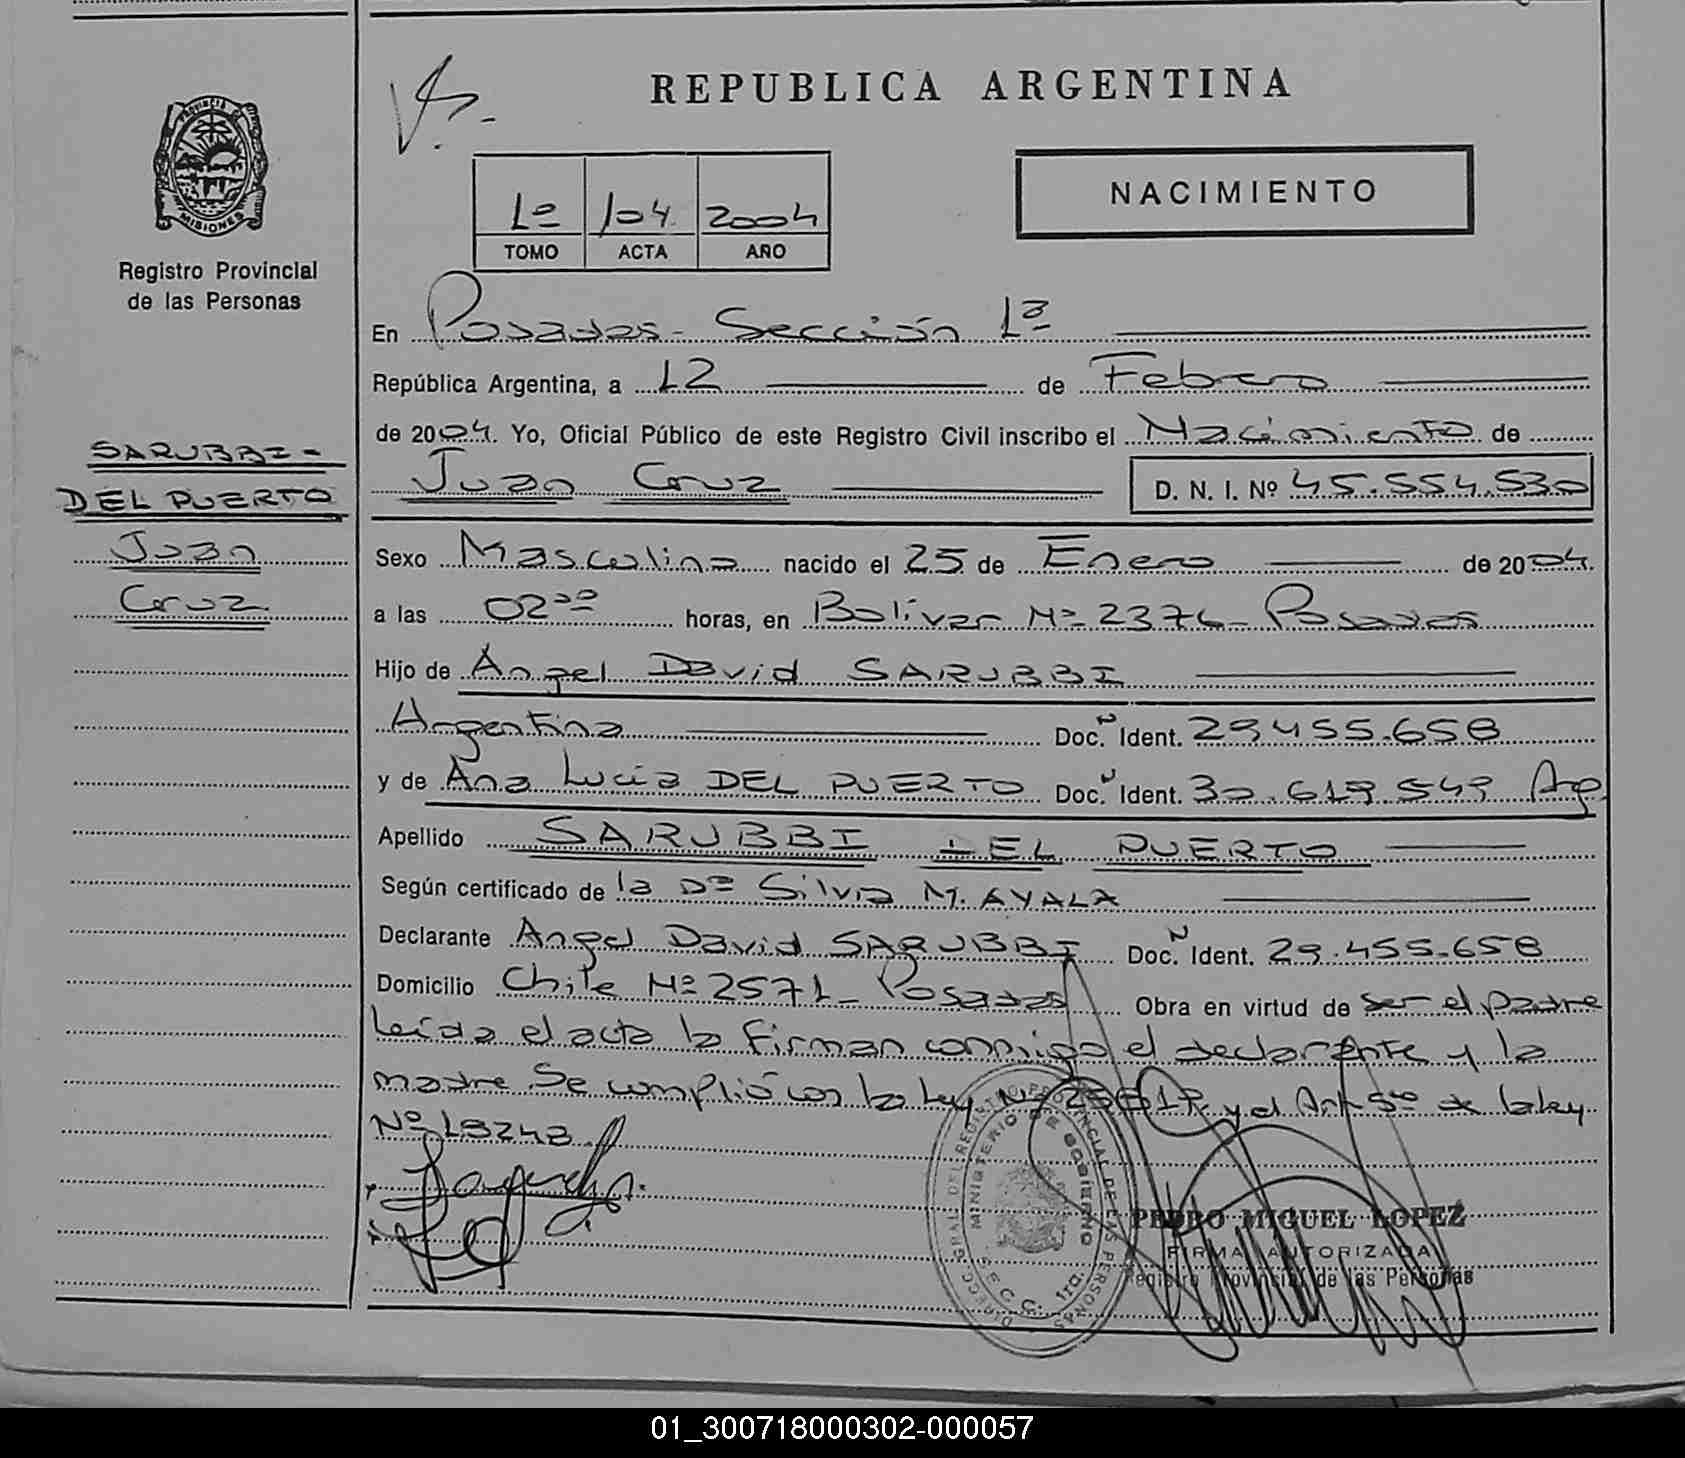 REPUBLICA ARGENTINA
NACIMIENTO
1º 104. 2004
TOMO ACTA AÑO
PROVINCIA MISIONES
Registro Provincial
de las Personas
SARUBBI-
DEL PUERTO
Juan
Cruz
En Posadas- Sección 1ª
República Argentina, a 12 de Febrero
de 2004. Yo, Oficial Público de este Registro Civil inscribo el Nacimiento de
Juan Cruz D. N. I. Nº 45.554.530
Sexo Masculino nacido el 25 de Enero de 2004.
a las 02 horas, en Bolivar Nº 2376- Posadas
Hijo de Angel David SARUBBI
Argentina Doc. N Ident. 29.455.658
y de Ana Lucia DEL PUERTO Doc. N Ident. 30.619.549 Arg.
Apellido SARUBBI DEL PUERTO
Según certificado de la Dra Silvia M. AYALA
Declarante Angel David SARUBBI Doc. N Ident. 29.455.658
Domicilio Chile Nº 2571- Posadas Obra en virtud de ser el padre
Leída el acta la firman conmigo el declarante y la
madre Se cumplió con la Ley Nº y el Art 5to de la ley
Nº 18248
DIRECC. GRAL. DEL REGISTRO PROVINCIAL DE LAS PERSONAS
MINISTERIO DE GOBIERNO
PEDRO MIGUEL LOPEZ
FIRMA AUTORIZADA
Registro Provincial de las Personas
01_300718000302-000057